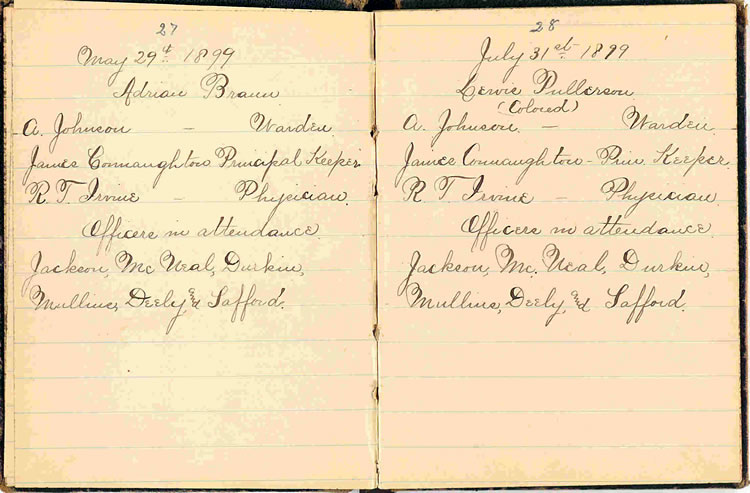 27
May 29th 1899
Adrian Braun
A. Johnson - Warden
James Connaughton Principal Keeper
R. T. Irvine - Physician.
Officers in attendance.
Jackson, Mc Neal, Durkin,
Mullins, Deely, and Safford.
28
July 31st 1899
Lewis Pullerson
(Colored)
A. Johnson. - Warden
James Connaughton - Prin. Keeper.
R T Irvine - Physician.
Officers in attendance.
Jackson, Mc. Neal, Durkin,
Mullins, Deely, and Safford.